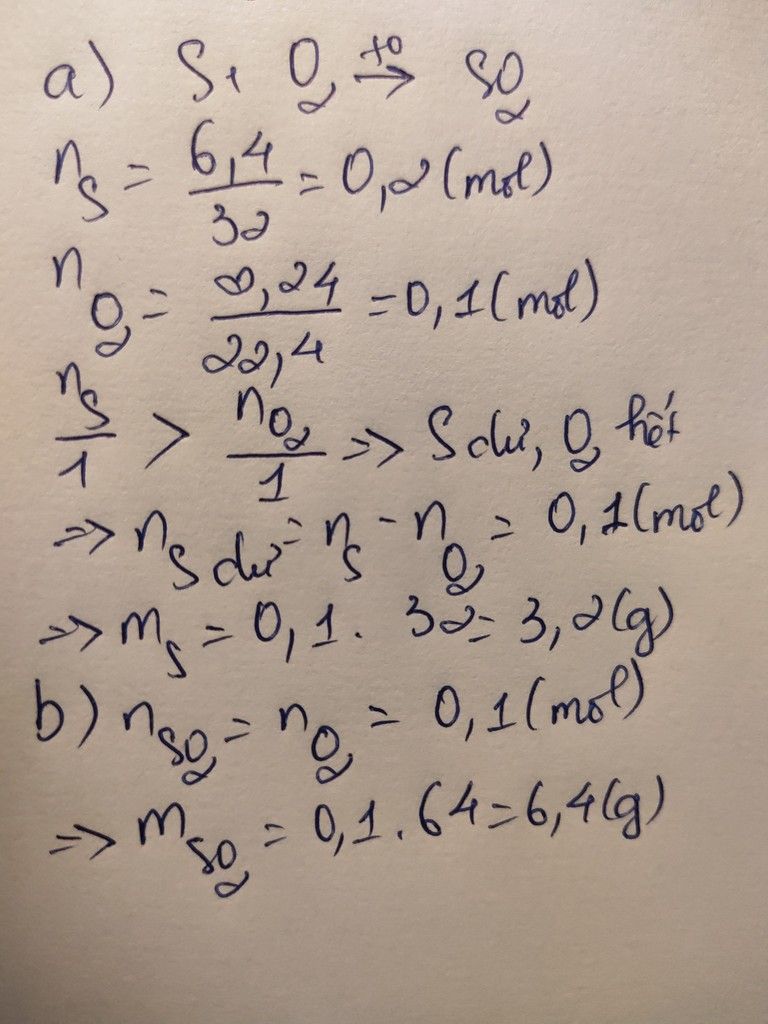 a) S + O₂ →(t⁰) SO₂
n_S = 6,4/32 = 0,2 (mol)
n_O₂ = 2,24/22,4 = 0,1 (mol)
n_S/1 > n_O₂/1 => S dư, O₂ hết
=> n_S dư = n_S - n_O₂ = 0,1 (mol)
=> m_S = 0,1 . 32 = 3,2 (g)
b) n_SO₂ = n_O₂ = 0,1 (mol)
=> m_SO₂ = 0,1 . 64 = 6,4 (g)